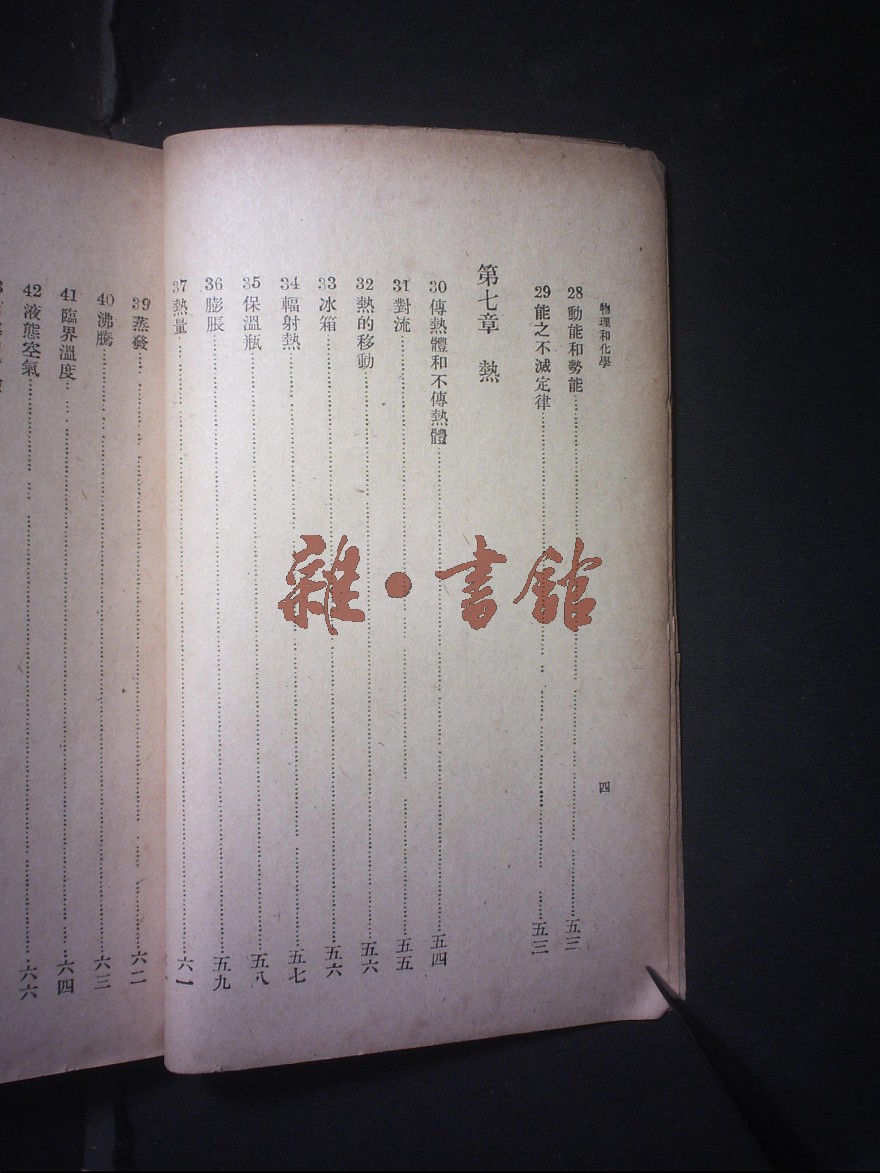 物理和化學
四
28 動能和勢能……五三
29 能之不滅定律……五三
第七章 熱
30 傳熱體和不傳熱體……五四
31 對流……五五
32 熱的移動……五六
33 冰箱……五六
34 輻射熱……五七
35 保溫瓶……五八
36 膨脹……五九
37 熱量……六一
39 蒸發……六二
40 沸騰……六三
41 臨界溫度……六四
42 液態空氣……六六
雜·書館